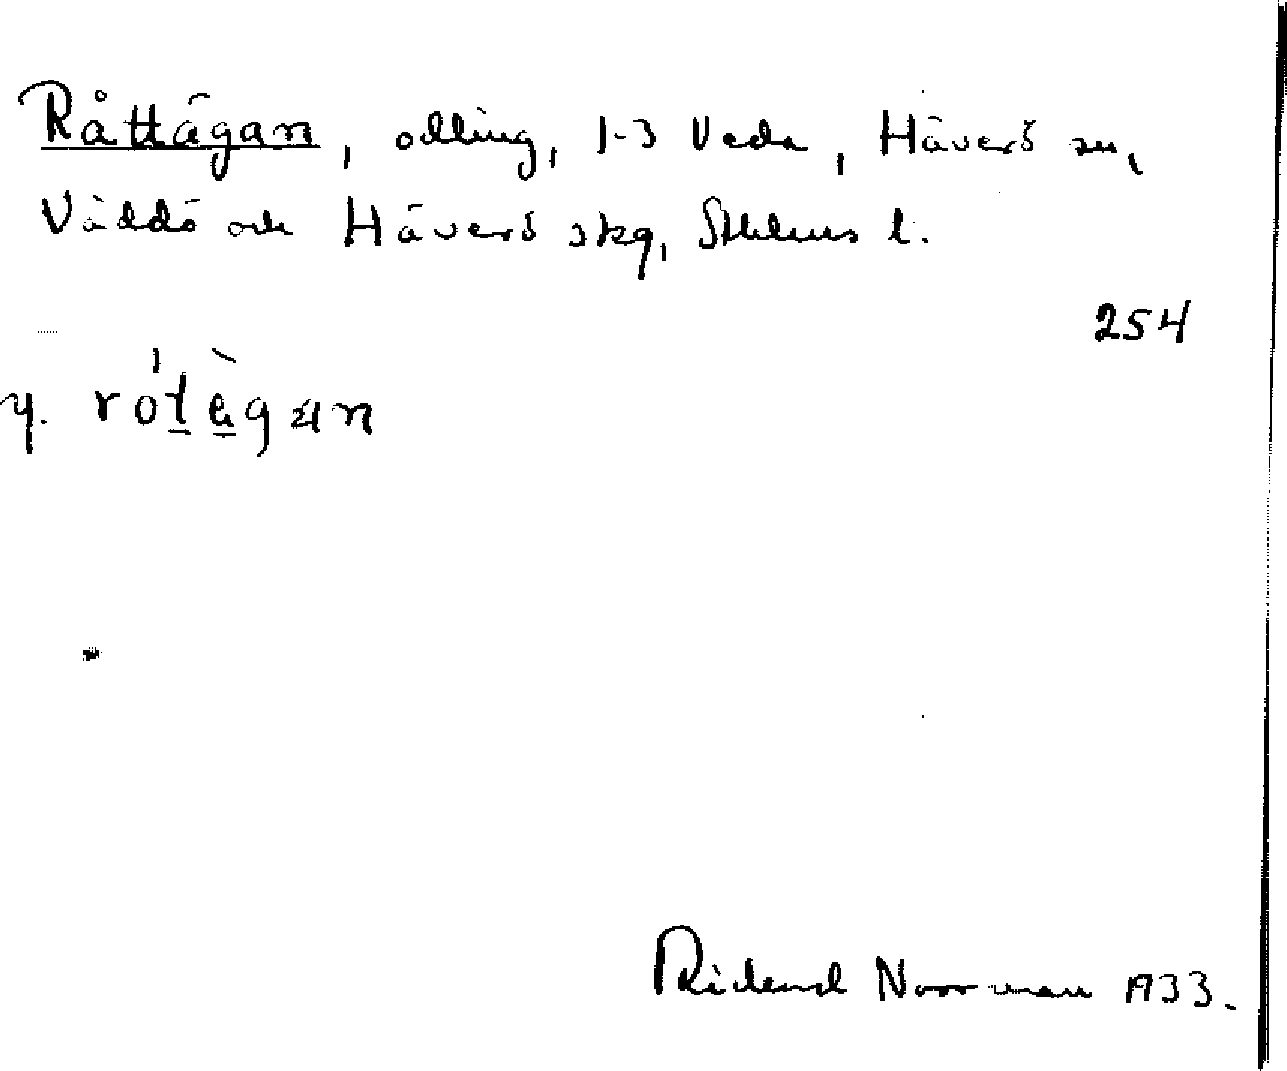 Råttägan, odling, 1-3 Veda, Häverö sn,
Väddö och Häverö skg, Sthlms l.
254
y.
Rickard Norrman 1933.